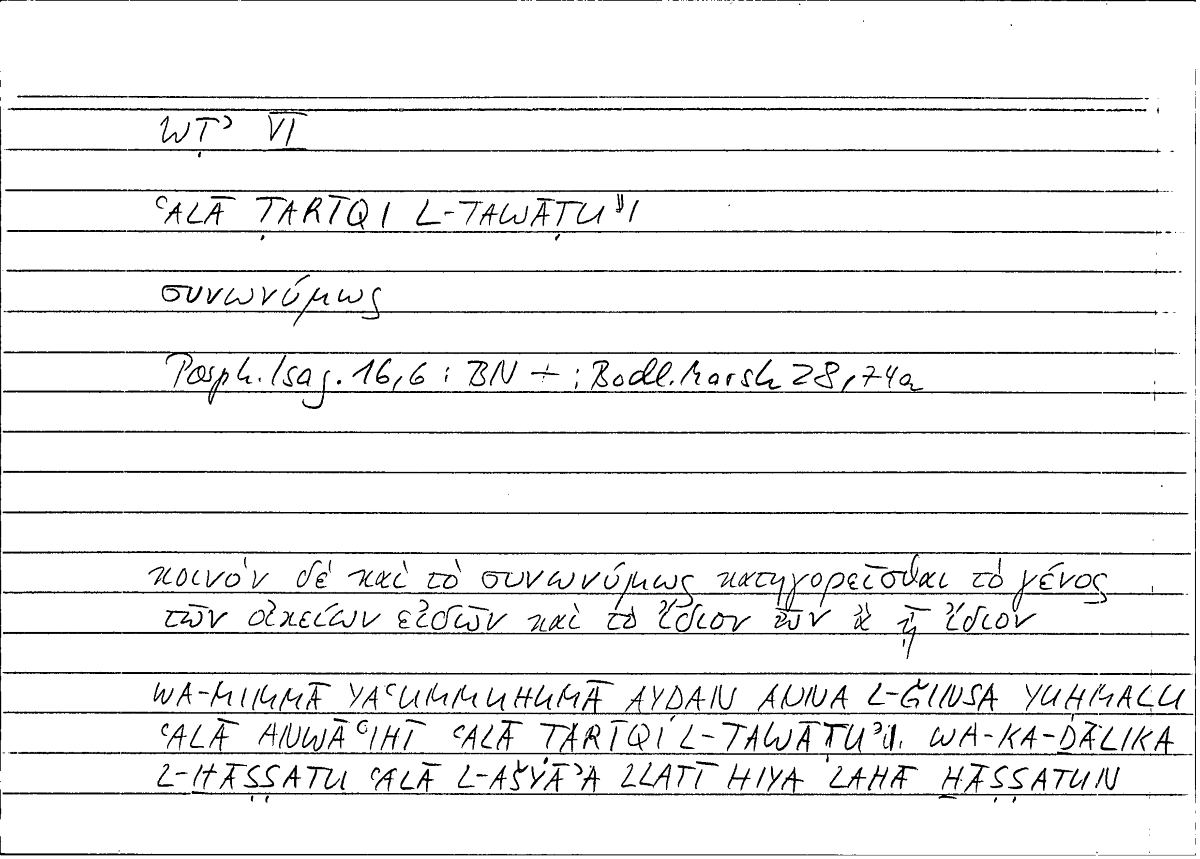 WṬʾ VI
ʿALĀ ṬARĪQI L-TAWĀṬUʾI
συνωνύμως
Porph. Isag. 16,6 : BN + ; Bodl. Marsh 28, 74a
κοινὸν δὲ καὶ τὸ συνωνύμως κατηγορεῖσθαι τὸ γένος
τῶν οἰκείων εἰδῶν καὶ τὸ ἴδιον τῶν ἃ ᾖ ἴδιον
WA-MIMMĀ YAʿUMMUHUMĀ AYḌAN ANNA L-ǦINSA YUḤMALU
ʿALĀ ANWĀʿIHĪ ʿALĀ ṬARĪQI L-TAWĀṬUʾI. WA-KA-ḎĀLIKA
L-ḪĀṢṢATU ʿALĀ L-AŠYĀʾA LLATĪ HIYA LAHĀ ḪĀṢṢATUN